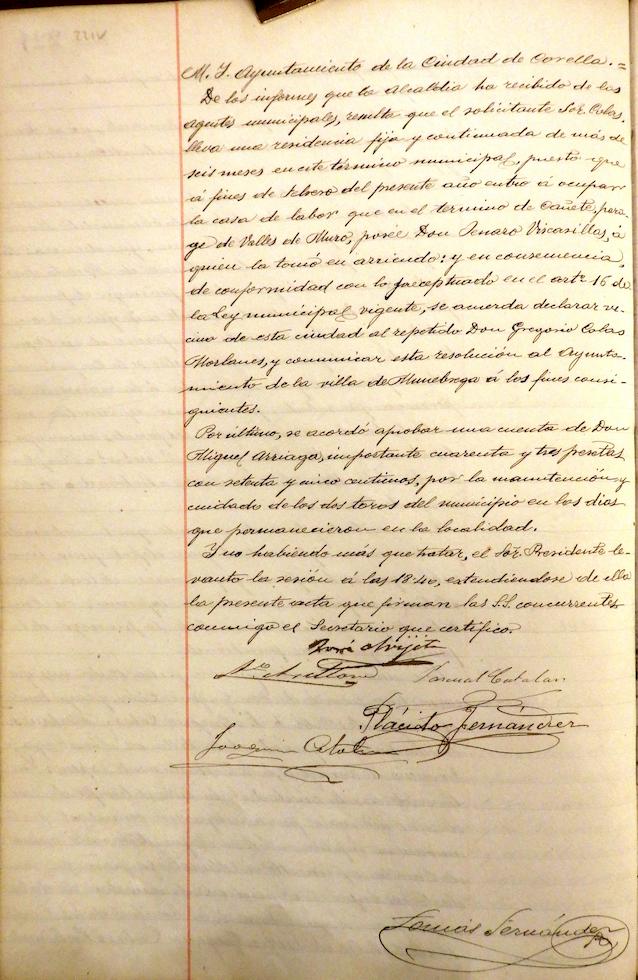 M. I. Ayuntamiento de la Ciudad de Corella.=
De los informes que la Alcaldía ha recibido de los
agentes municipales, resulta que el solicitante Sor. Colas,
lleva una residencia fija y continuada de más de
seis meses en este término municipal, puesto que
á fines de Febrero del presente año entró á ocupar
la casa de labor que en el termino de Cañete, para-
ge de Valles de Muro, posée Don Jenaro Vircasillas, á
quien la tomó en arriendo: y en consecuencia,
de conformidad con lo preceptuado en el artº 16 de
la Ley municipal vigente, se acuerda declarar ve-
cino de esta ciudad al repetido Don Gregorio Colas
Morlanes, y comunicar esta resolución al Ayunta-
miento de la villa de Munebrega á los fines consi-
guientes.
Por último, se acordó aprobar una cuenta de Don
Miguel Arriaga, importante cuarenta y tres pesetas
con setenta y cinco centimos, por la manutención y
cuidado de los dos toros del municipio en los dias
que permanecieron en la localidad.
Y no habiendo más que tratar, el Sor. Presidente le-
vantó la sesión á las 18'40, extendiendose de ella
la presente acta que firman las S.S. concurrentes
conmigo el Secretario que certifico.
José
Pascual Catalan
Plácido Fernández
Joaquin
Tomás Fernández